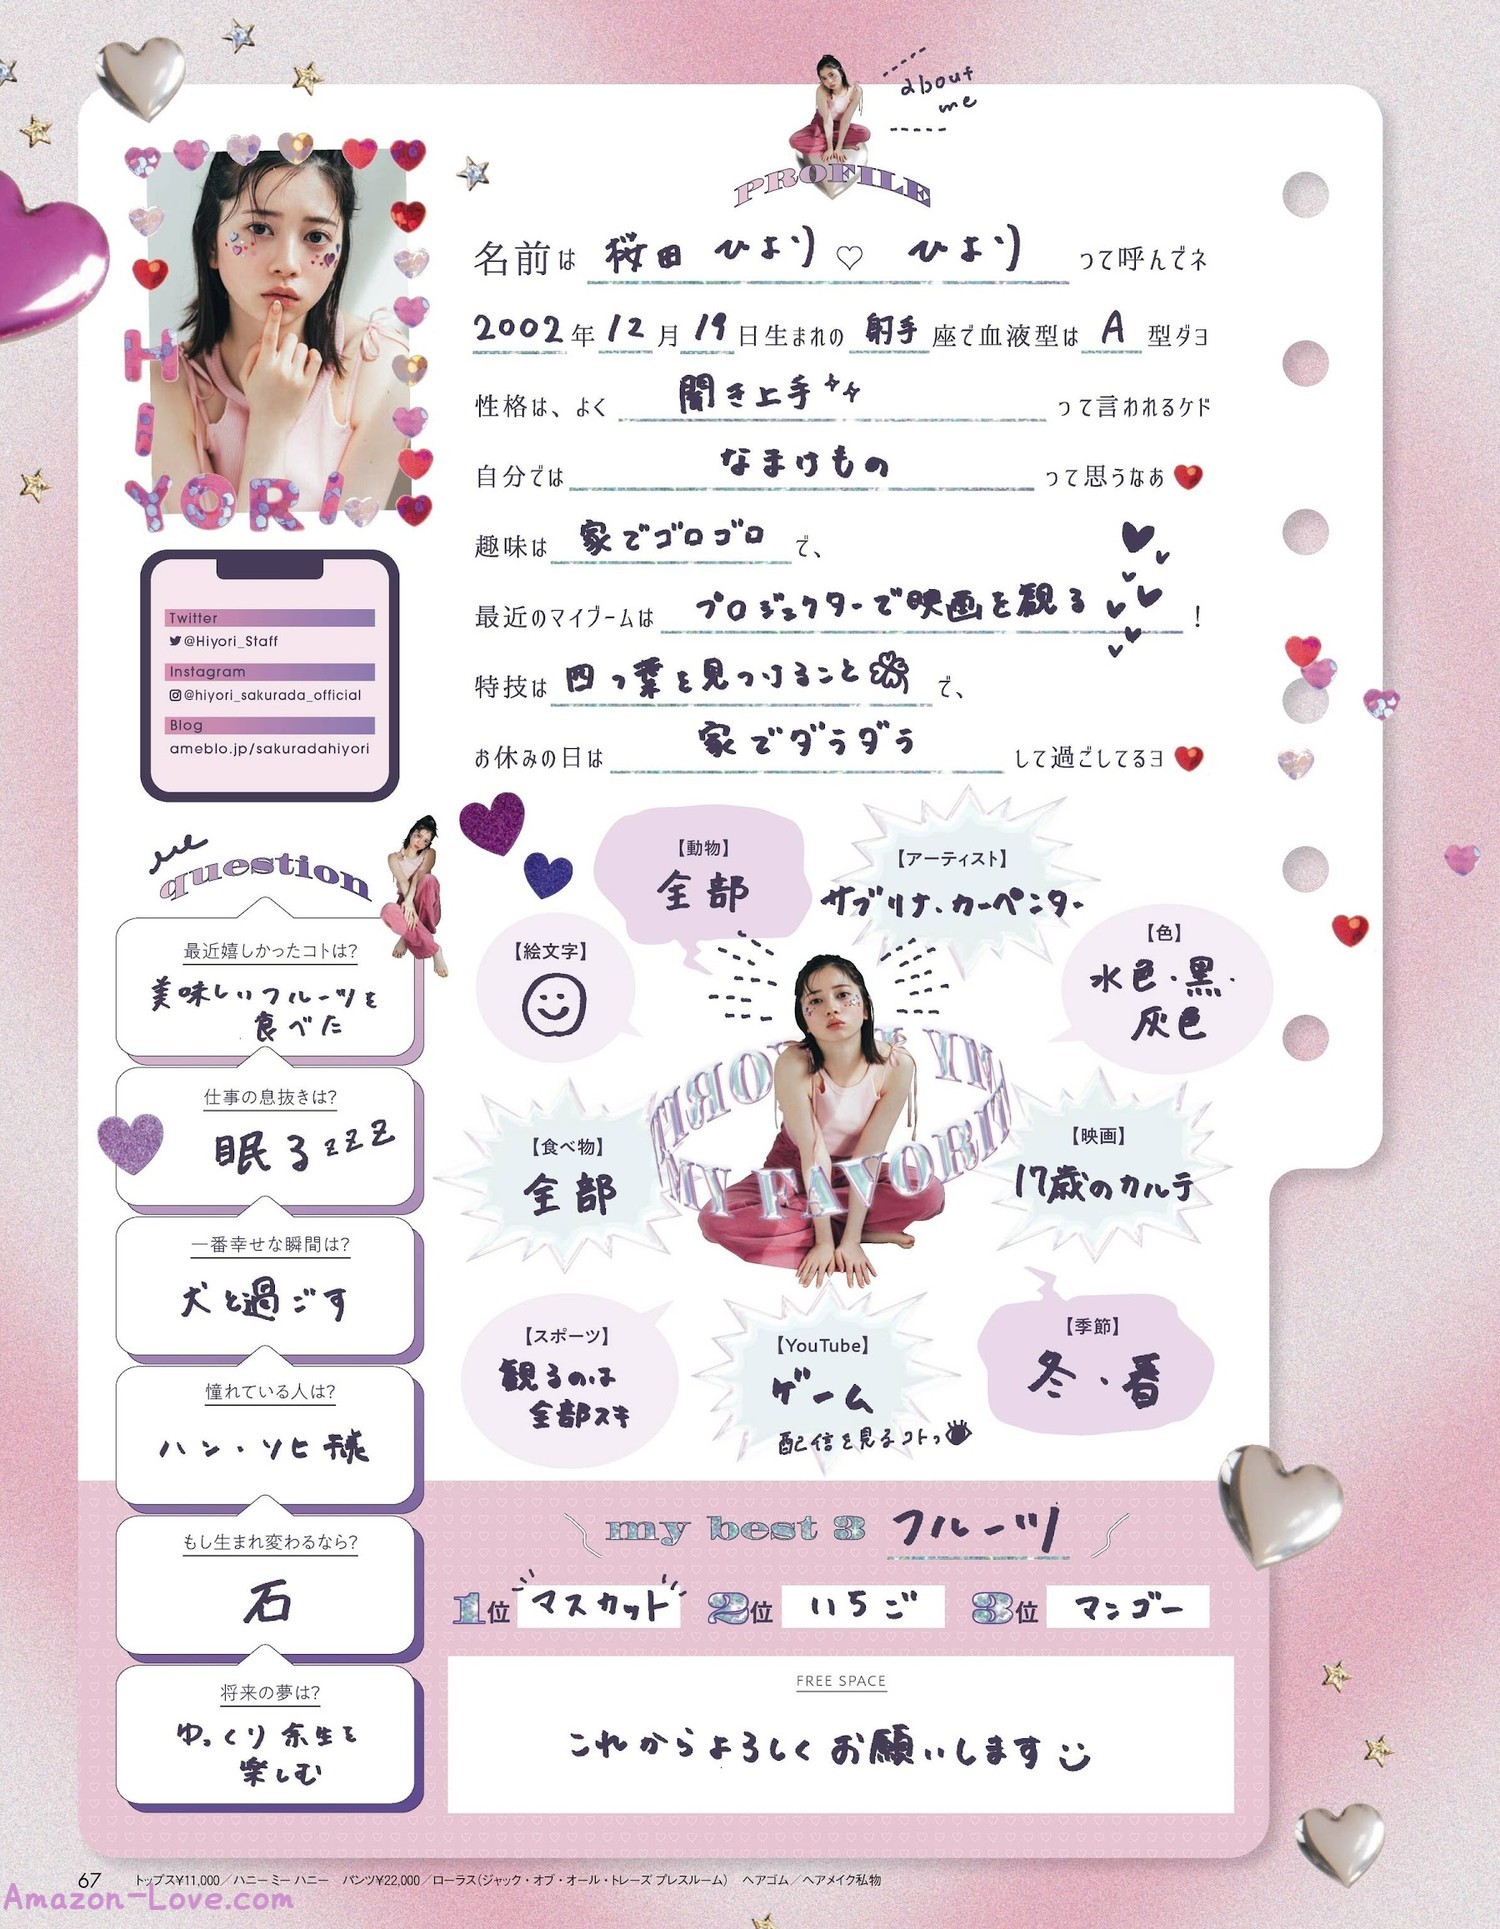 about
me
PROFILE
名前は 桜田 ひより♡ ひより って呼んでネ
2002年12月19日生まれの 射手 座で血液型は A 型ダヨ
性格は、よく 聞き上手 って言われるケド
自分では なまけもの って思うなあ
趣味は 家でゴロゴロ で、
最近のマイブームは プロジェクターで映画を観る !
特技は 四つ葉を見つけること で、
お休みの日は 家でダラダラ して過ごしてるヨ
HIYORI
Twitter
@Hiyori_Staff
Instagram
@hiyori_sakurada_official
Blog
ameblo.jp/sakuradahiyori
question
最近嬉しかったコトは?
美味しいフルーツを
食べた
仕事の息抜きは?
眠るzzz
一番幸せな瞬間は?
犬と過ごす
憧れている人は?
ハン・ソヒ様
もし生まれ変わるなら?
石
将来の夢は?
ゆっくり余生を
楽しむ
【動物】
全部
【アーティスト】
サブリナ・カーペンター
【絵文字】
【色】
水色・黒・
灰色
MY FAVORITE
【食べ物】
全部
【映画】
17歳のカルテ
【スポーツ】
観るのは
全部スキ
【YouTube】
ゲーム
配信を見るコトっ
【季節】
冬・春
my best 3 フルーツ
1位 マスカット 2位 いちご 3位 マンゴー
FREE SPACE
これからよろしくお願いします
67 トップス¥11,000/ハニー ミー ハニー パンツ¥22,000/ローラス(ジャック・オブ・オール・トレーズ プレスルーム) ヘアゴム/ヘアメイク私物
Amazon-Love.com